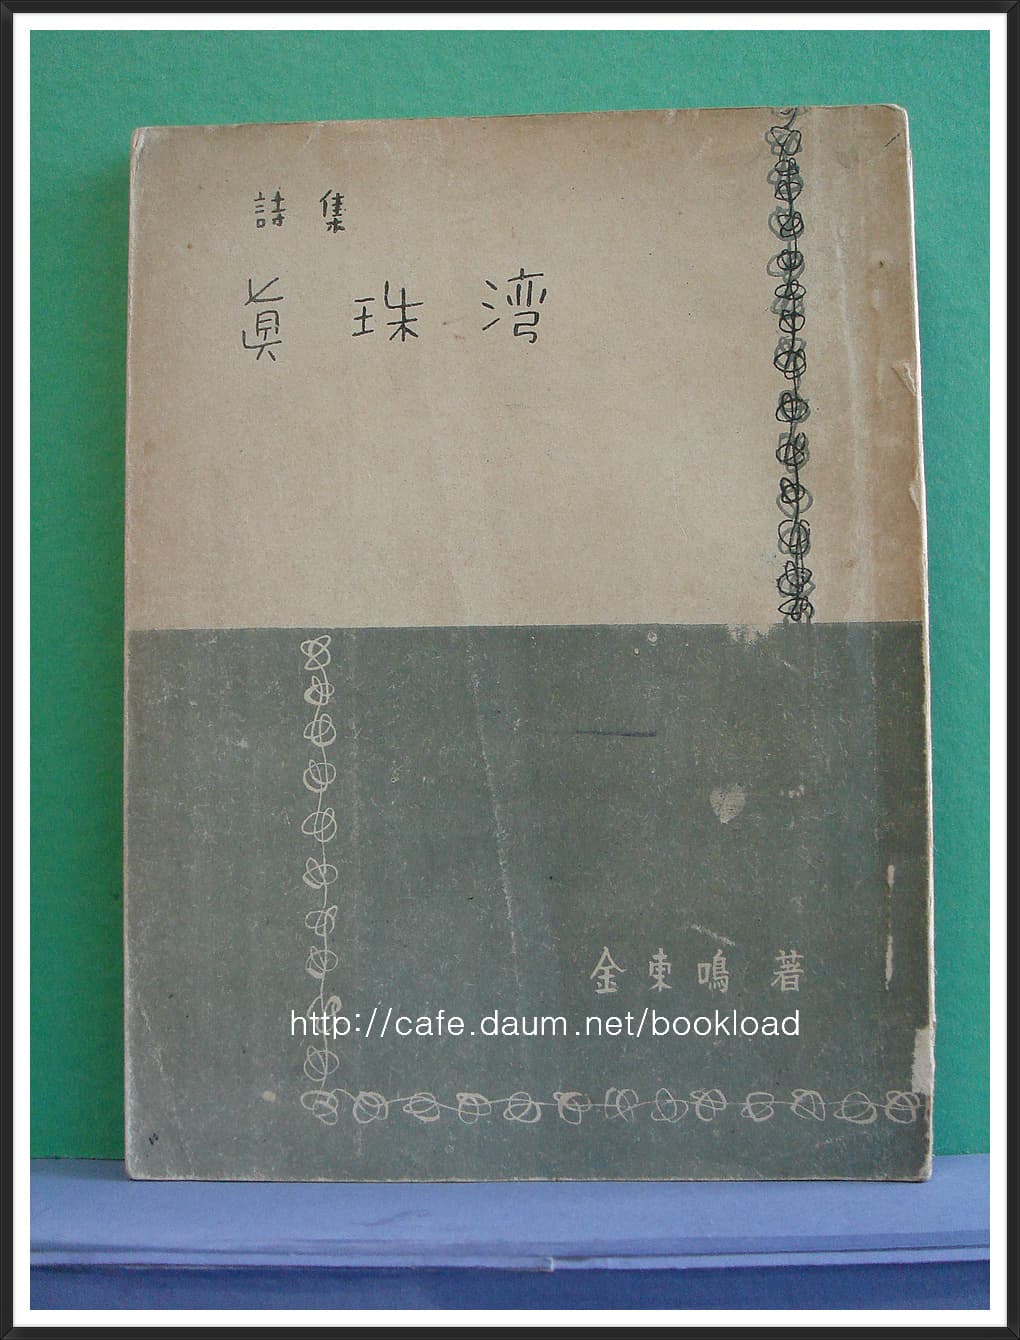 詩集
眞珠湾
金東鳴 著
http://cafe.daum.net/bookload